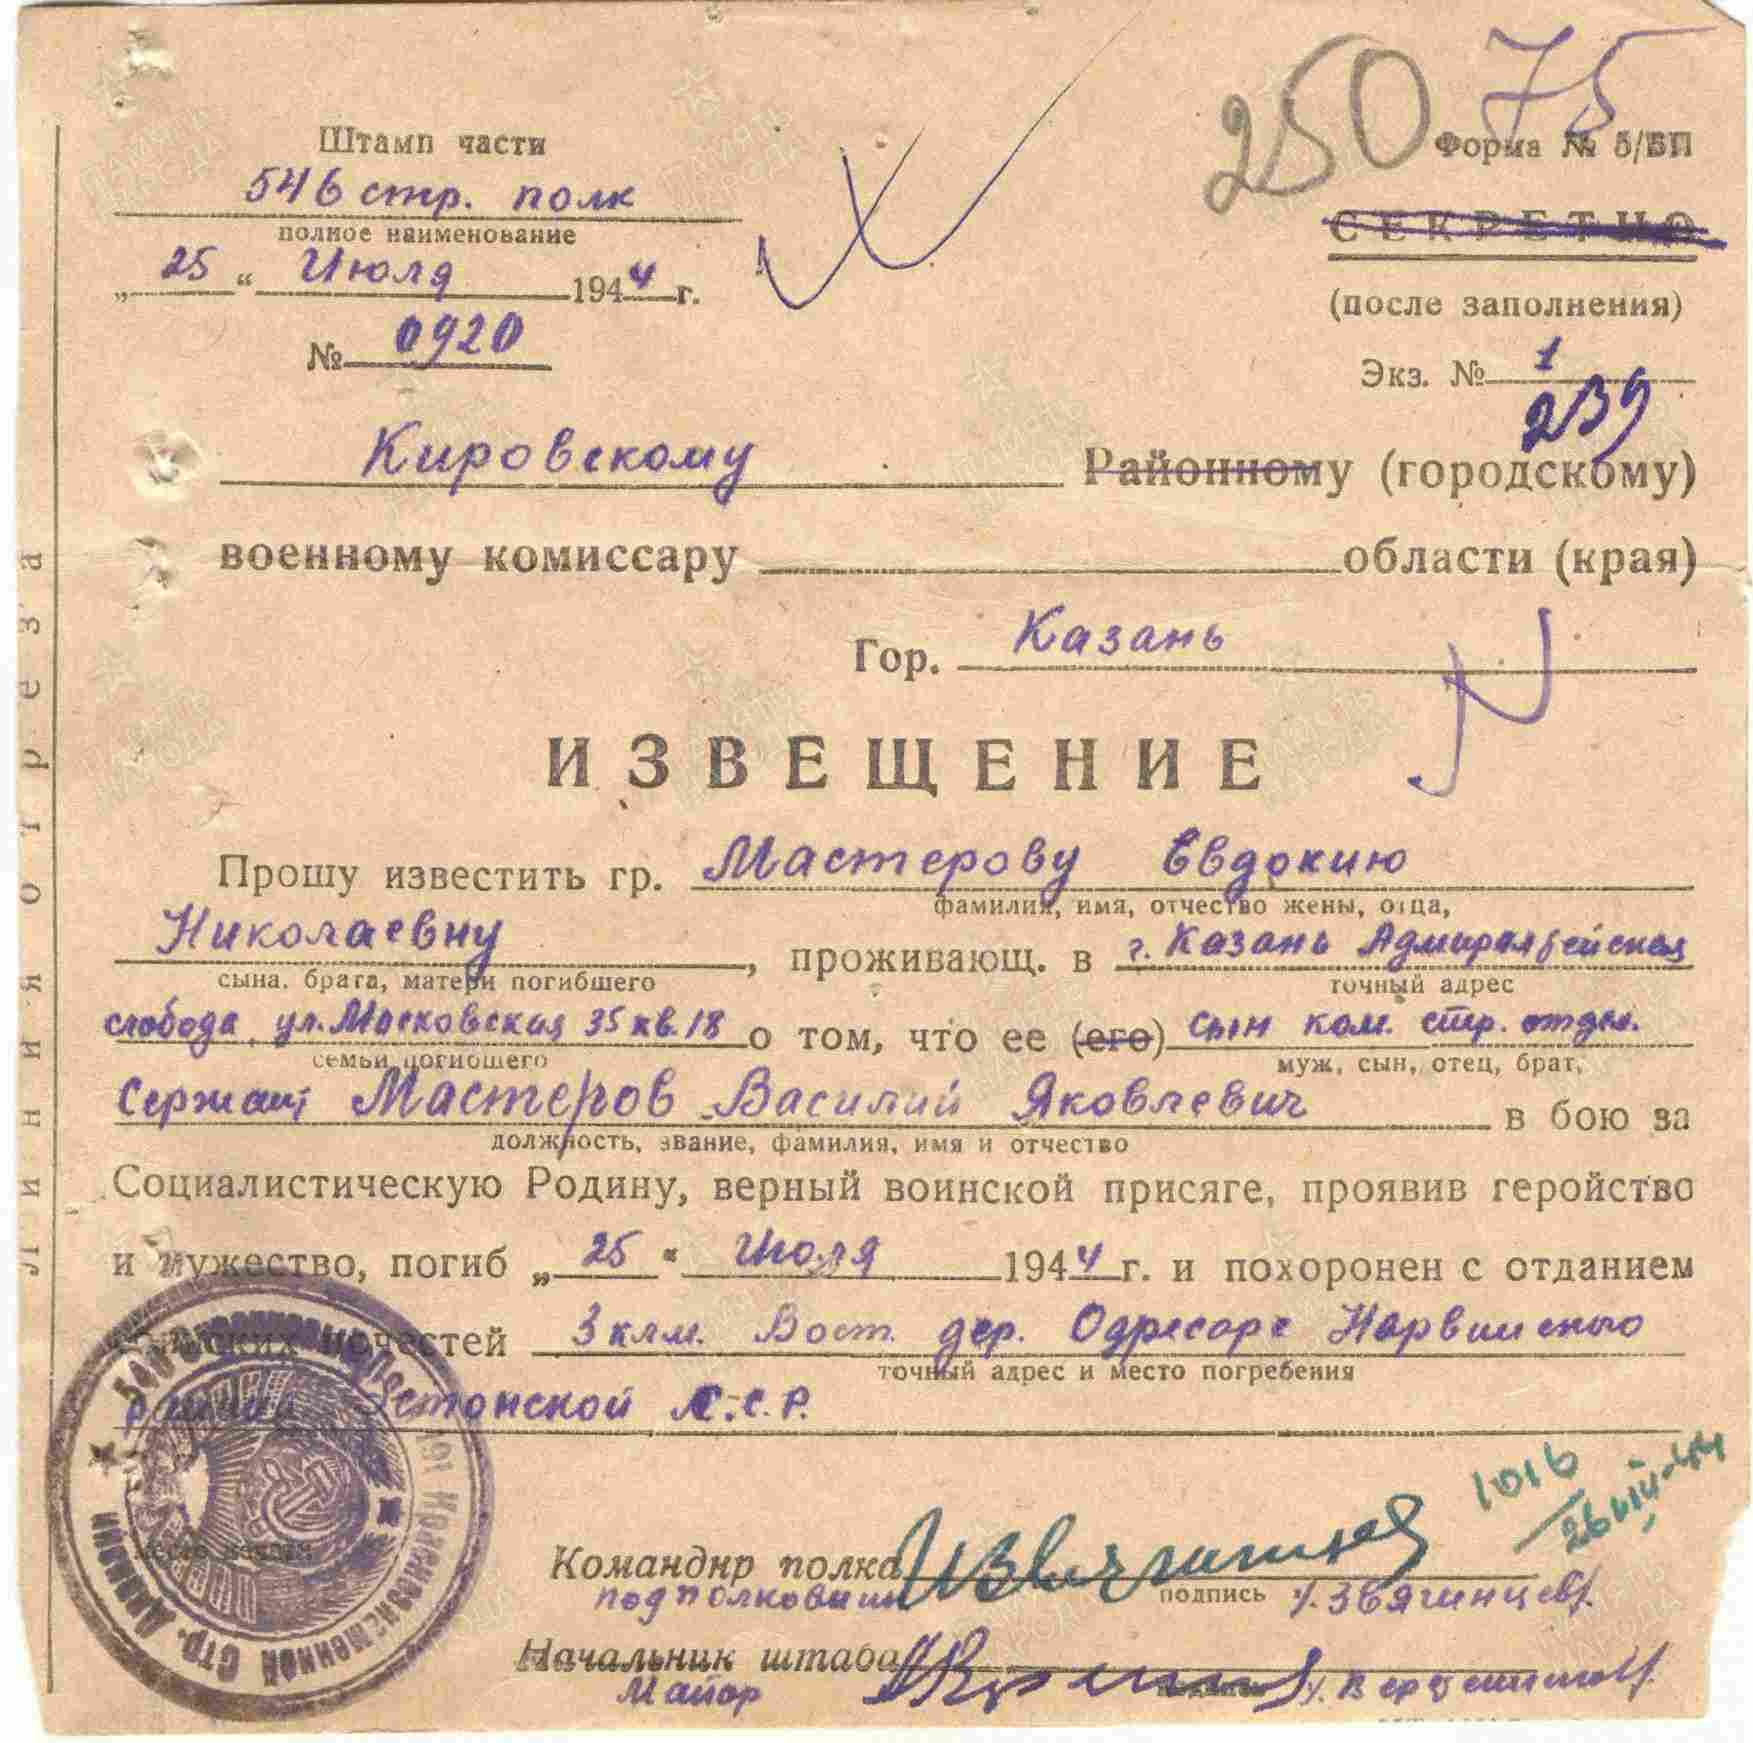 250 75
Штамп части
Форма № 5/БП
546 стр. полк
СЕКРЕТНО
полное наименование
„25“ Июля 1944 г.
(после заполнения)
№ 0920
Экз. № 1
239
Кировскому Районному (городскому)
военному комиссару области (края)
Гор. Казань
ИЗВЕЩЕНИЕ
Прошу известить гр. Мастерову Евдокию
фамилия, имя, отчество жены, отца,
Николаевну, проживающ. в г. Казань Адмиралтейская
сына, брата, матери погибшего точный адрес
слобода, ул. Московская 35 кв. 18 о том, что ее (его) сын ком. стр. отдел.
семьи погибшего муж, сын, отец, брат,
Сержант Мастеров Василий Яковлевич в бою за
должность, звание, фамилия, имя и отчество
Социалистическую Родину, верный воинской присяге, проявив геройство
и мужество, погиб „25“ Июля 1944 г. и похоронен с отданием
воинских почестей 3 клм. Вост. дер. Одресоре Нарвинского
точный адрес и место погребения
Эстонской С.С.Р.
1016
Командир полка
подполковник подпись /.Звягинцев/.
Начальник штаба
Майор
Линия отреза
ПАМЯТЬ НАРОДА